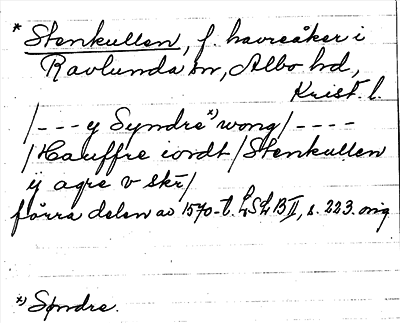 * Stenkullen, f. havreåker i
Ravlunda sn, Albo hd,
Krist. l.
/--- y Syndre *) wong/ ----
/Hauffre iordt/Stenkullen
ij agre v skr/
förra delen av 1570-t. LSLB II, s. 223. orig
*) Søndre.